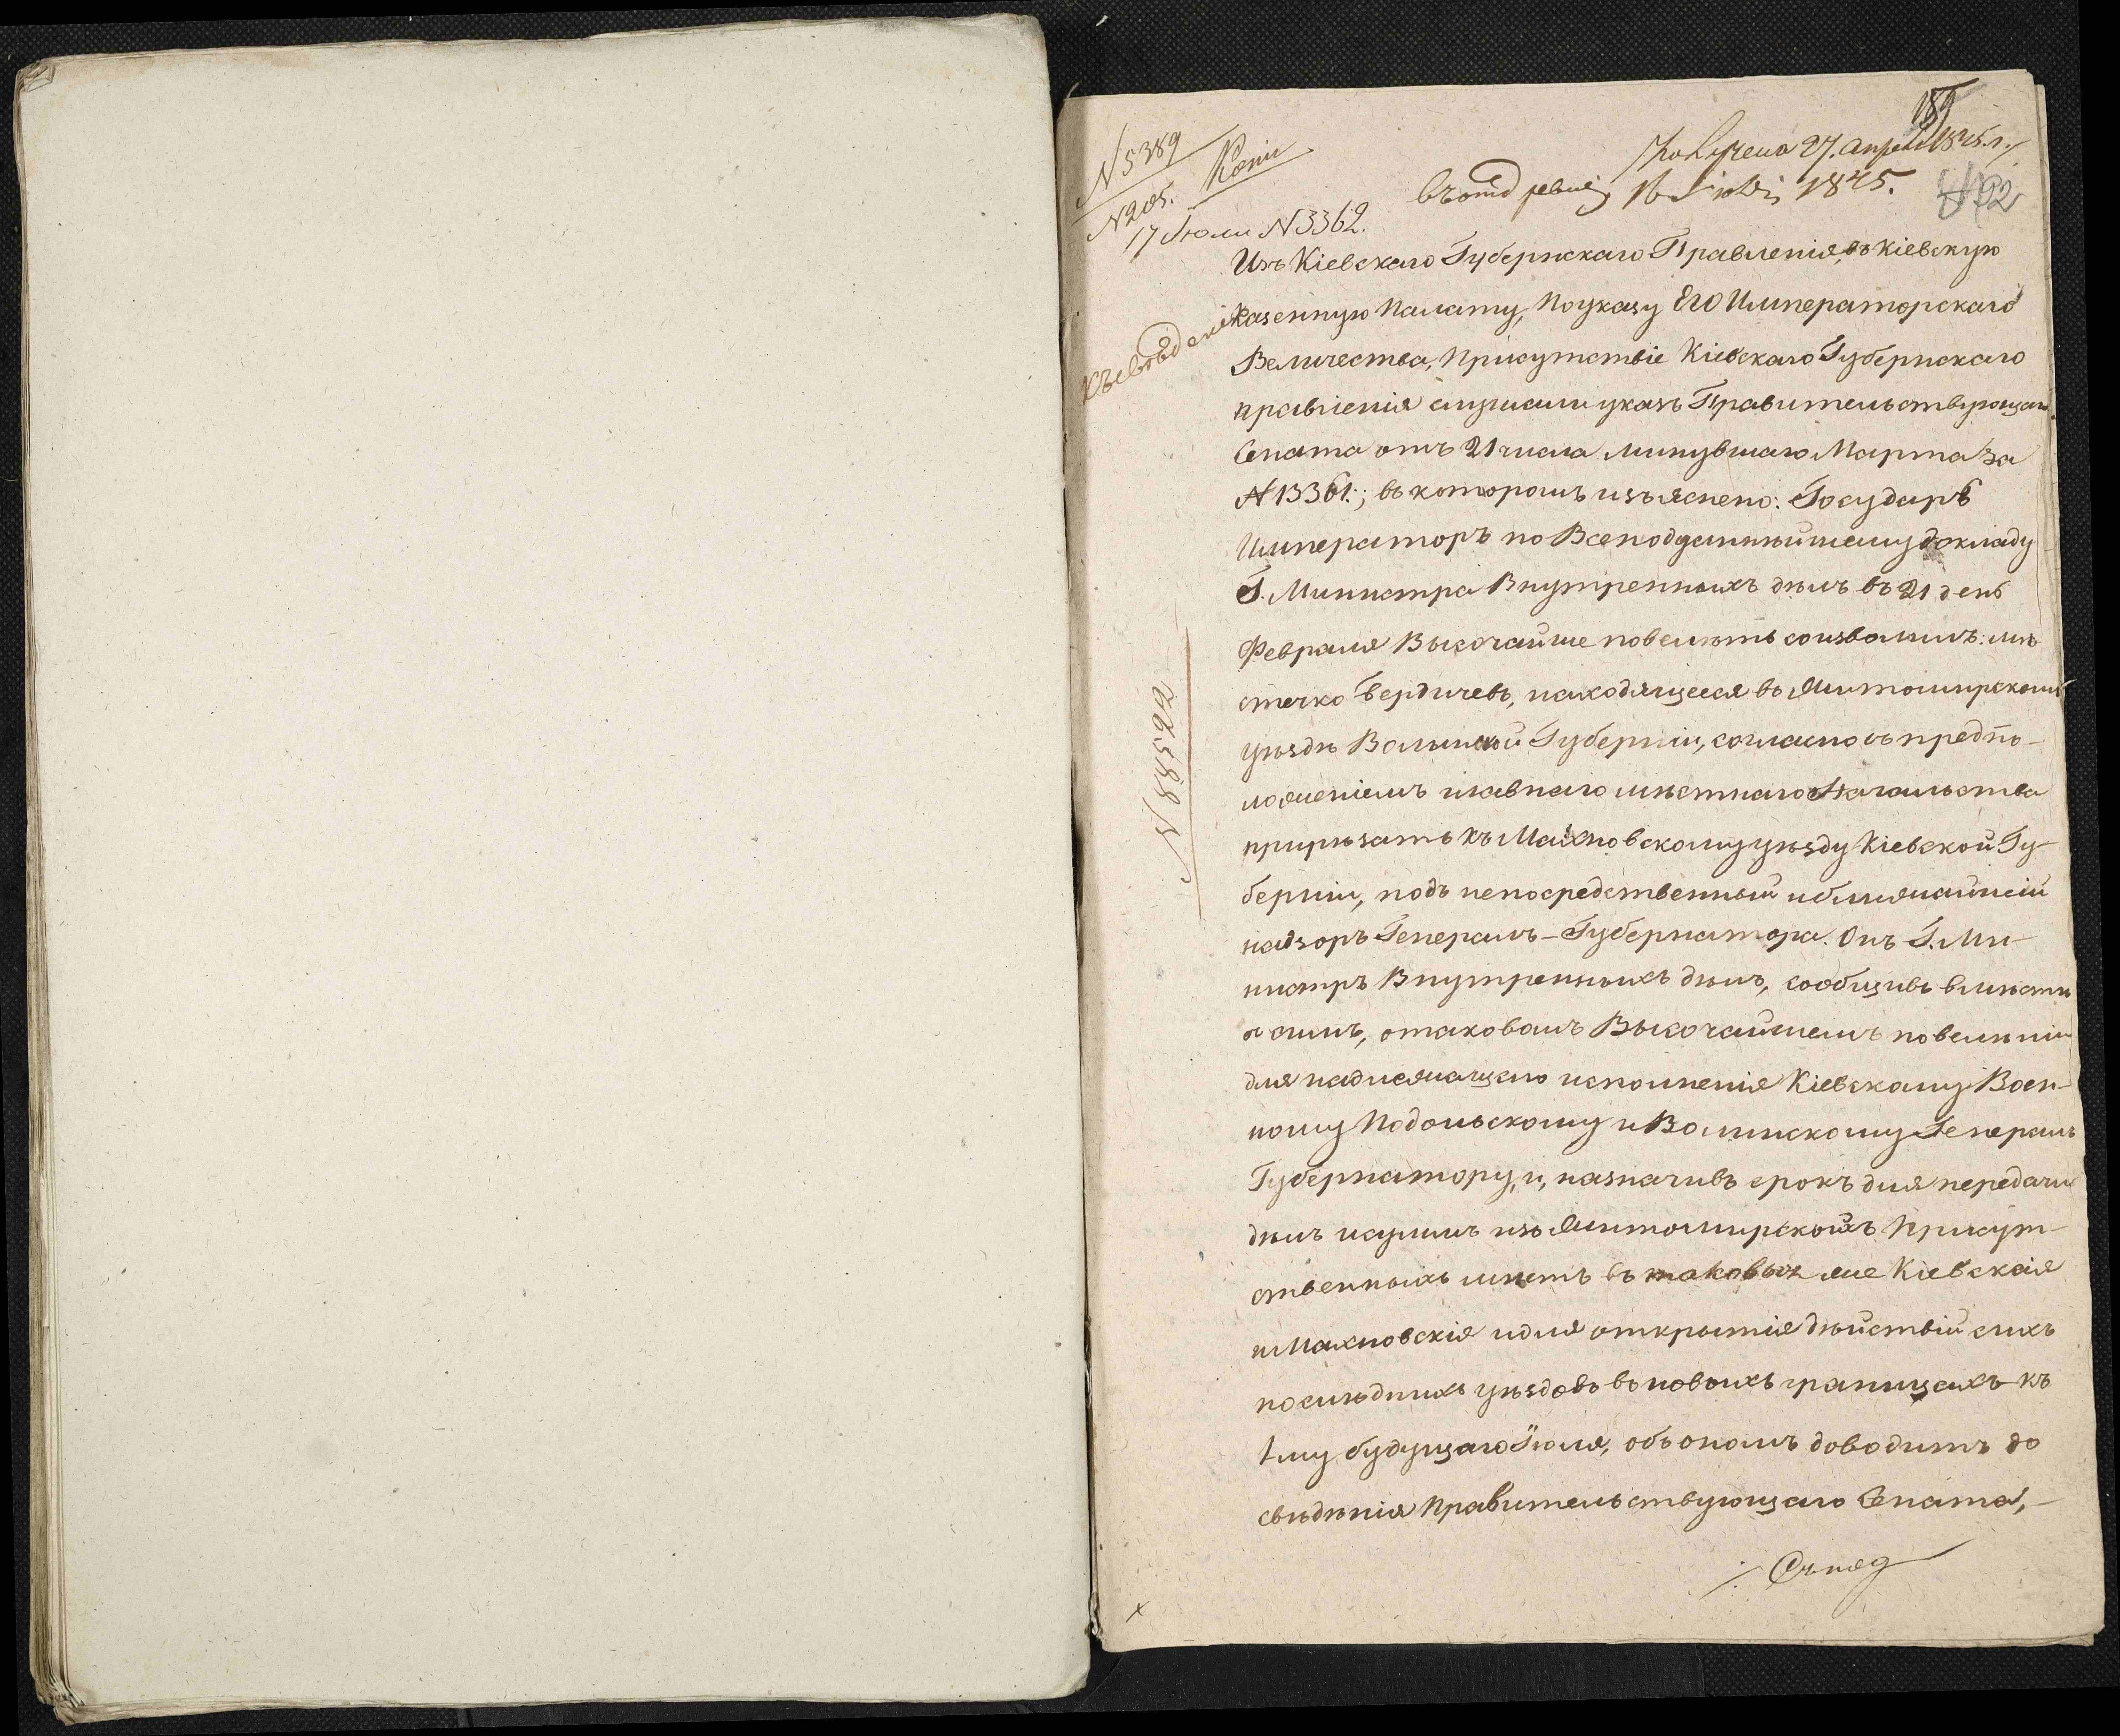 189
N 5389
Копія
Получена 27. апреля 1845. г.
N 205.
въ отд ревиз 16 Іюля 1845.
17 Іюля N 3362.
Изъ Кіевскаго Губернскаго Правленія, въ Кіевскую
Къ свѣденію
Казенную Палату, По указу Его Императорскаго
Величества, Присутствіе Кіевскаго Губернскаго
правленія слушали указъ Правительствующаго
Сената отъ 21 числа минувшаго Марта за
N 13361.; въ которомъ изъяснено: Государь
Императоръ по Всеподданнѣйшему докладу
Г. Министра Внутренныхъ дѣлъ въ 21 день
Февраля Высочайше повелѣть соизволилъ: мѣ
стечко Бердичевъ, находящееся въ Житомирскомъ
уѣздѣ Волынской Губерніи, согласно съ предпо-
ложеніемъ главнаго мѣстнаго Начальства
прирѣзать къ Махновскому уѣзду Кіевской Гу-
берніи, подъ непосредственный и ближайшій
надзоръ Генералъ-Губернатора. Онъ Г. Ми-
нистръ Внутренныхъ дѣлъ, сообщивъ вмѣстѣ
съ симъ, о таковомъ Высочайшемъ повелѣніи
для надлежащаго исполненія Кіевскому Воен-
ному Подольскому и Волынскому Генералъ
Губернатору, и, назначивъ срокъ для передачи
дѣлъ и суммъ изъ Житомирскихъ Присут-
ственныхъ мѣстъ въ таковыя же Кіевскія
и Махновскія и для открытія дѣйствій сихъ
послѣднихъ уѣздовъ въ новыхъ границахъ къ
1му будущаго Іюля, объ ономъ доводитъ до
свѣдѣнія Правительствующаго Сената,-
N 88522